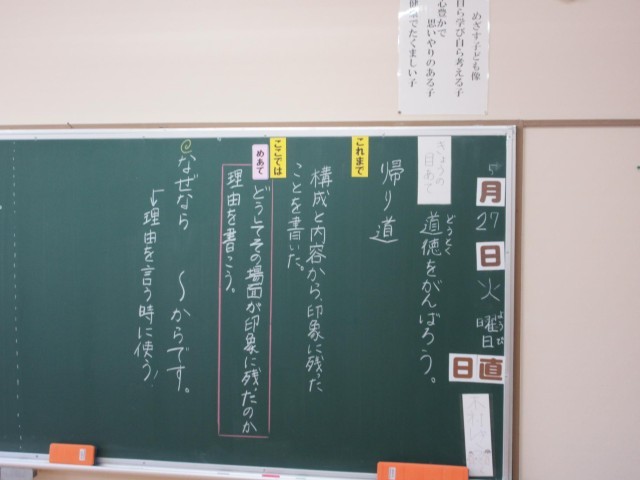 めざす子ども像
自ら学び自ら考える子
心豊かで
思いやりのある子
健康でたくましい子
5月27日火曜日
ようび
日直
きょうの
目あて
道徳をがんばろう。
どうとく
帰り道
これまで
構成と内容から、印象に残った
ことを書いた。
ここでは
めあて
どうしてその場面が印象に残ったのか
理由を書こう。
なぜなら 〜からです。
↓理由を言う時に使う!